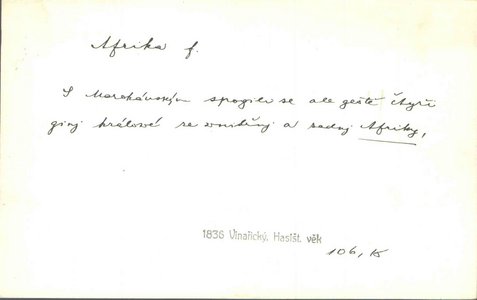 Afrika f.
S Marokánským spogili se ale geště čtyři
giný králové ze vnitřný a zadný Afriky,
1836 Vinařický, Hasišt. věk
106, K